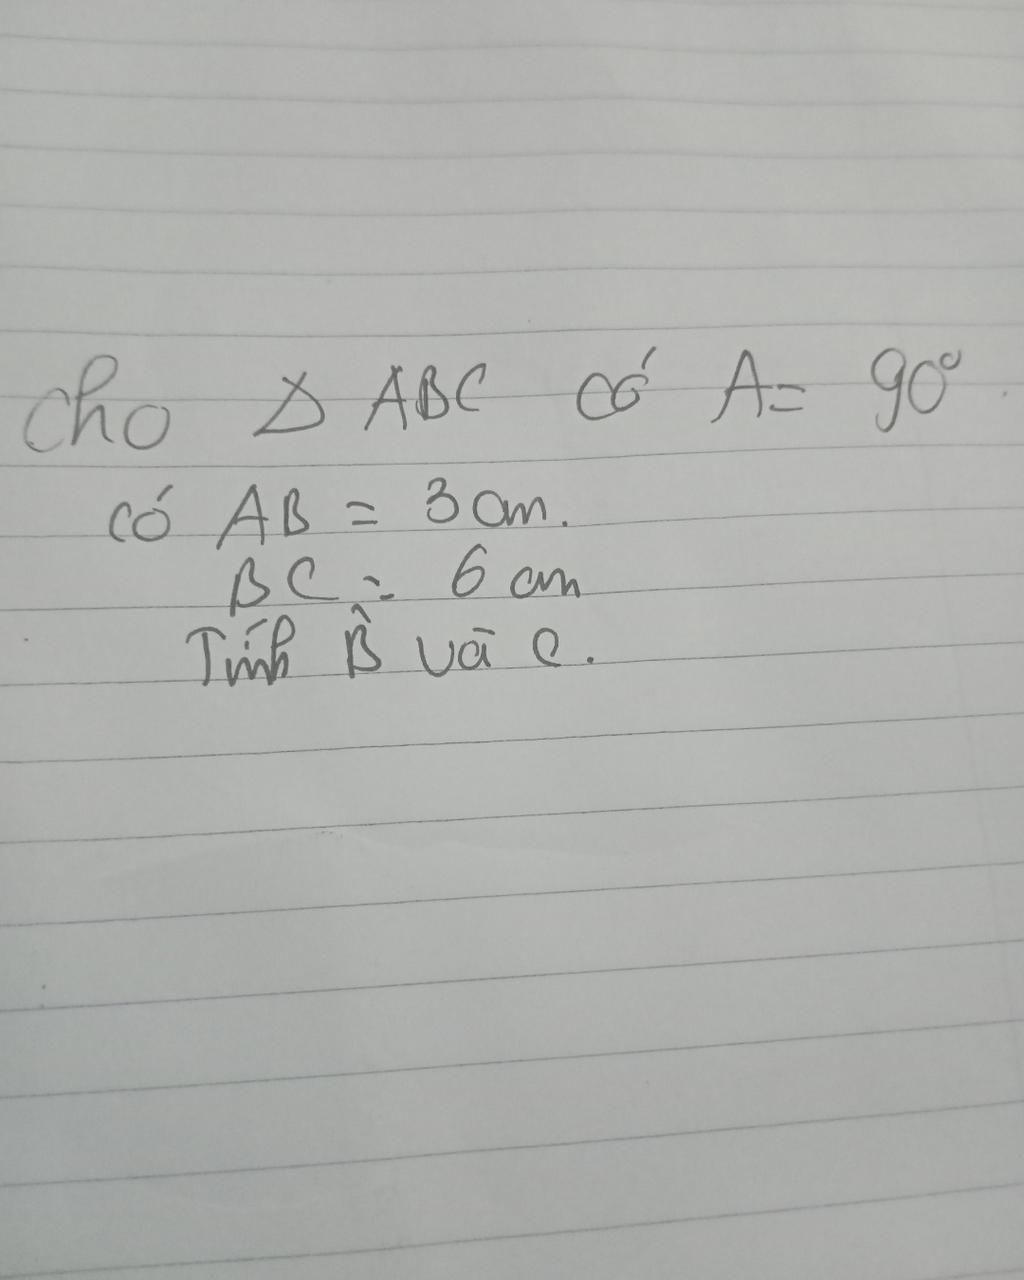 Cho Δ ABC có A = 90°
có AB = 3 cm.
BC = 6 cm
Tính B̂ và C.